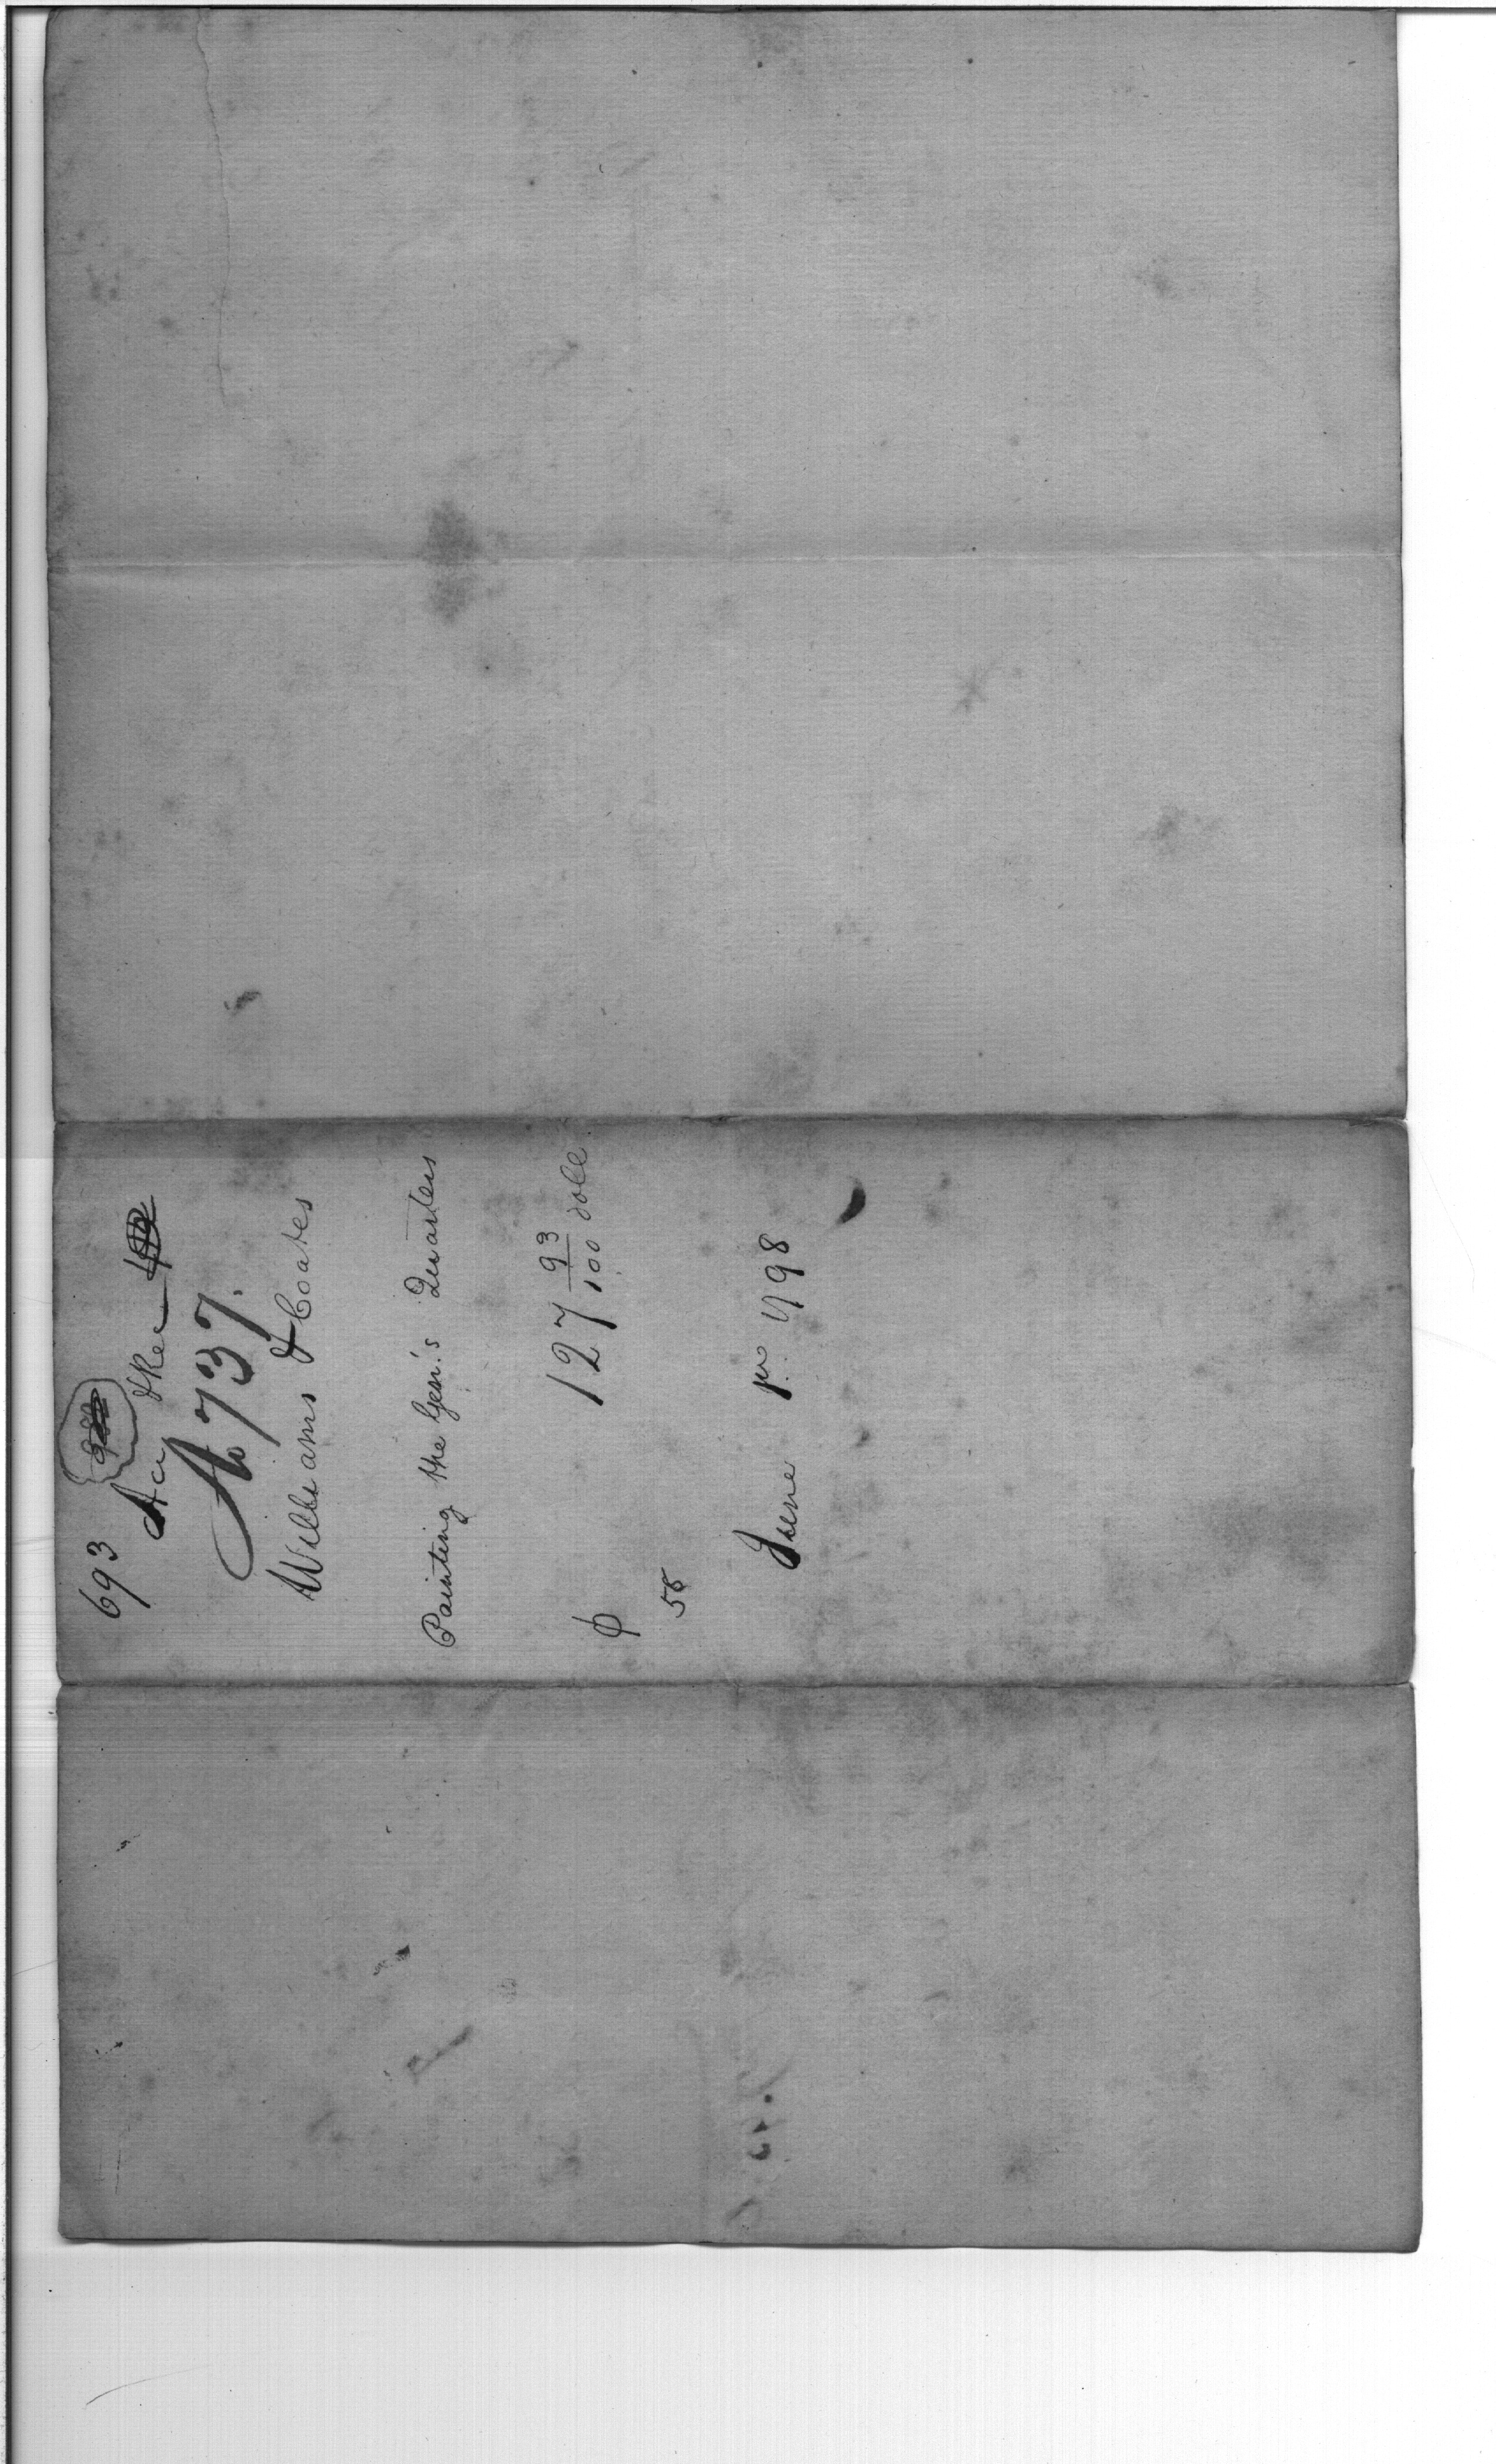 693
Acc & Rec
No 737.
Williams & Coates
Painting the Gen.'s Quarters
127 93/100 doll
ϕ
58
June 1798